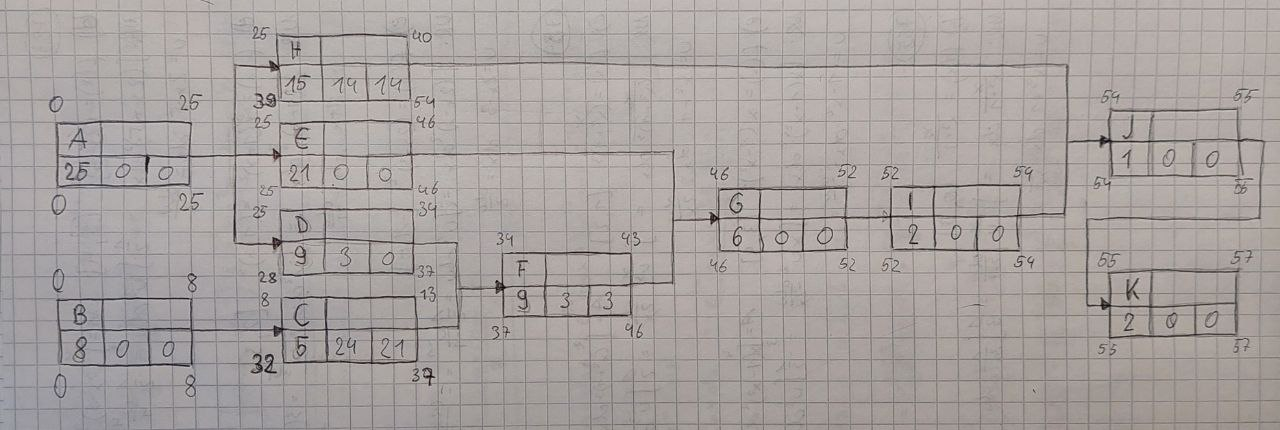 25 40
H
15 14 14
39 54
0 25
A
25 0 0
0 25
25 46
E
21 0 0
25 46
25 34
D
9 3 0
28 37
0 8
B
8 0 0
0 8
8 13
C
5 24 21
32 37
34 43
F
9 3 3
37 46
46 52
G
6 0 0
46 52
52 54
I
2 0 0
52 54
54 55
J
1 0 0
54 55
55 57
K
2 0 0
55 57